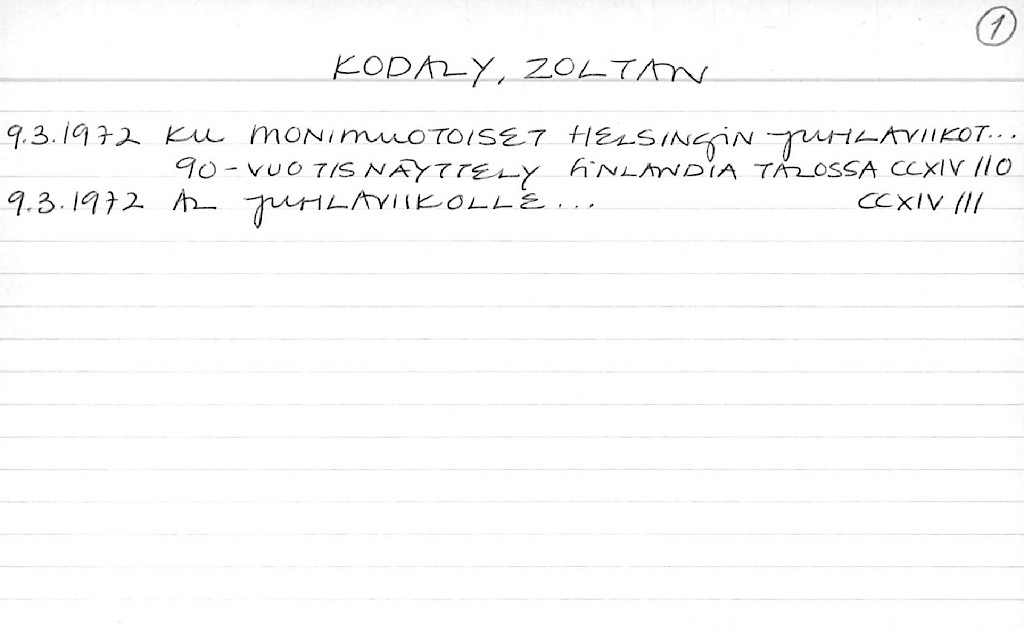 1
KODALY, ZOLTAN
9.3.1972 KU MONIMUOTOISET HELSINGIN JUHLAVIIKOT...
90-VUOTISNÄYTTELY FINLANDIA TALOSSA CCXIV 110
9.3.1972 AL JUHLAVIIKOLLE... CCXIV 111